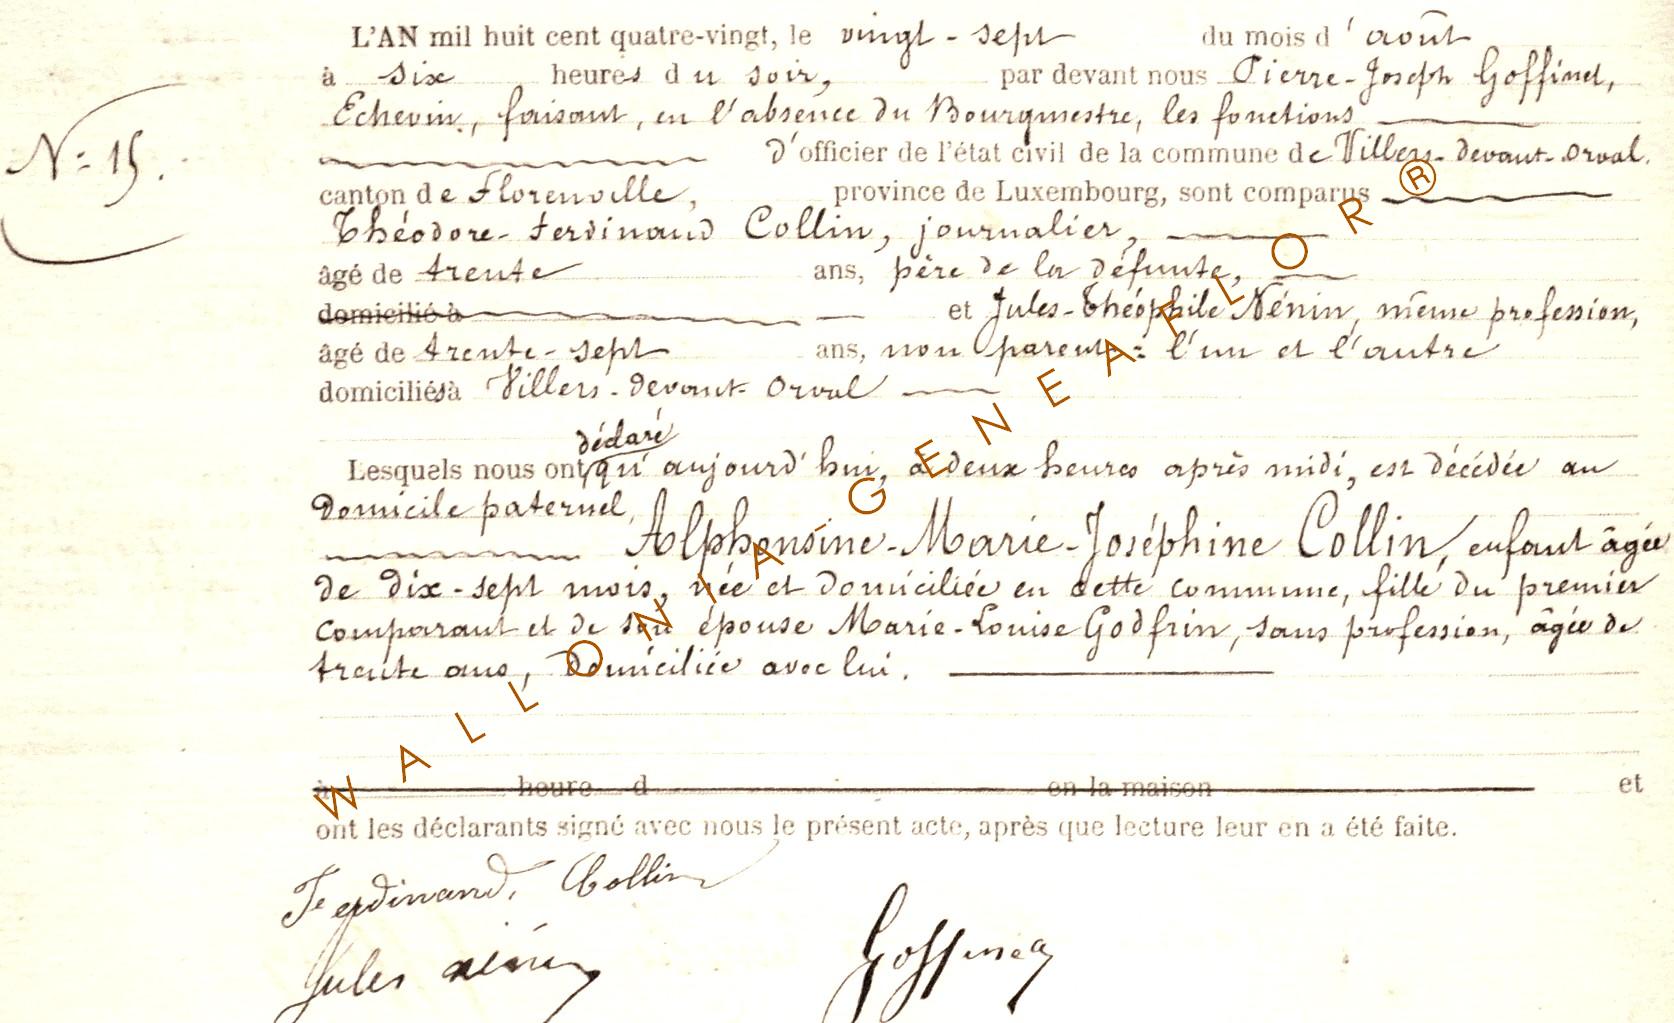 L'AN mil huit cent quatre-vingt, le vingt-sept du mois d'août
à six heures du soir, par devant nous Pierre-Joseph Goffinet,
Echevin, faisant, en l'absence du Bourgmestre, les fonctions
N° 15. d'officier de l'état civil de la commune de Villers-devant-Orval.
canton de Florenville, province de Luxembourg, sont comparus
Théodore-Ferdinand Collin, journalier,
âgé de trente ans, père de la défunte,
domicilié à et Jules-Théophile Nénin, même profession,
âgé de trente-sept ans, non parent: l'un et l'autre
domiciliés à Villers-devant-Orval
déclaré
Lesquels nous ont qu'aujourd'hui, à deux heures après midi, est décédée au
domicile paternel,
Alphonsine-Marie-Joséphine Collin, enfant âgée
de dix-sept mois, née et domiciliée en cette commune, fille du premier
comparant et de son épouse Marie-Louise Godfrin, sans profession, âgée de
trente ans, domiciliée avec lui.
à heure d en la maison et
ont les déclarants signé avec nous le présent acte, après que lecture leur en a été faite.
Ferdinand, Collin
Jules Nénin Goffinet
WALLONIA GENEAFLOR®